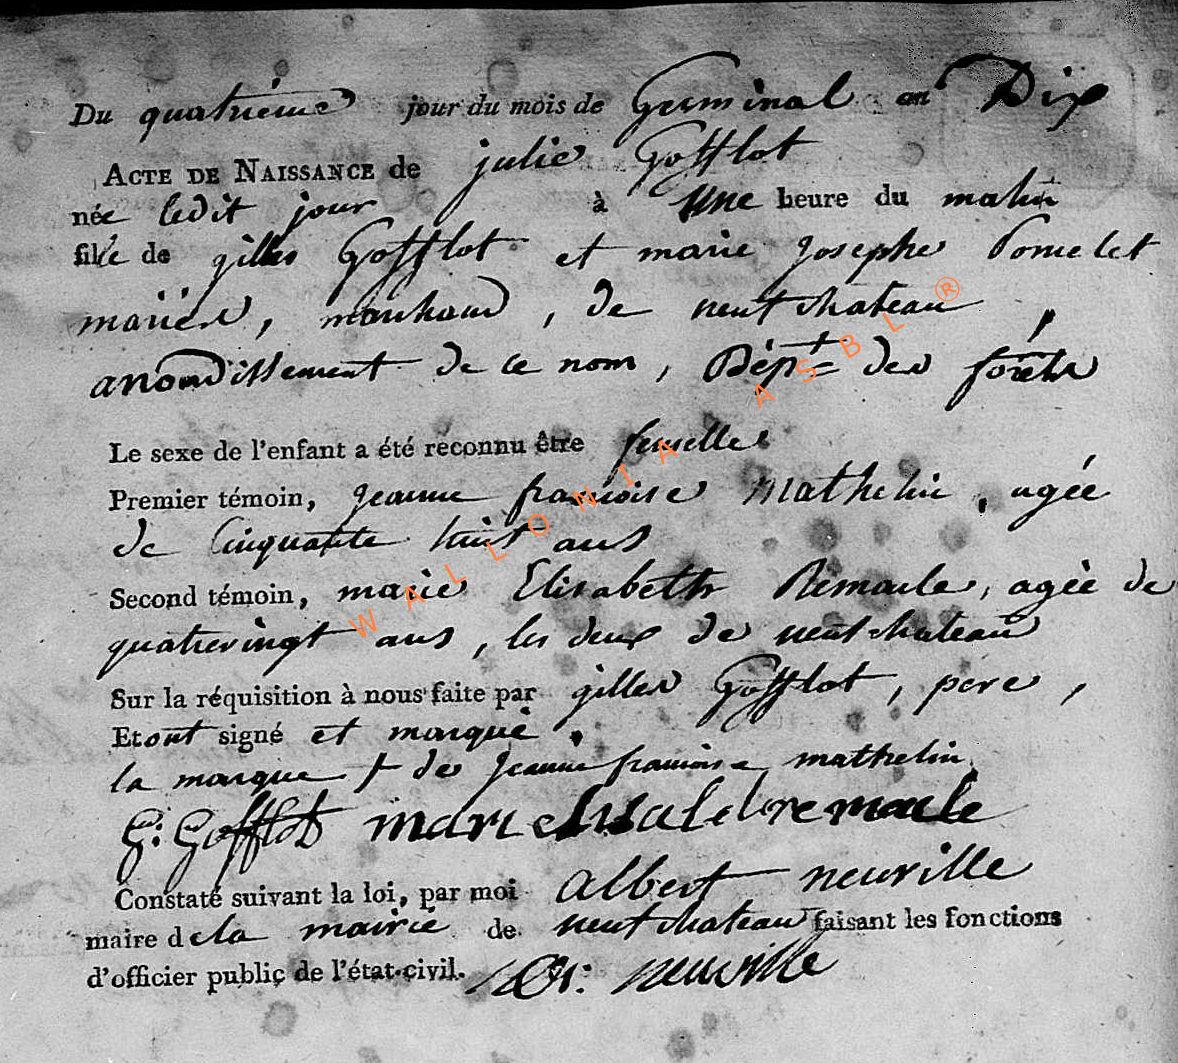 Du quatrième jour du mois de Germinal an Dix
ACTE DE NAISSANCE de julie Gofflot
née ledit jour à une heure du matin
fille de gilles Gofflot et marie Josephe Pomelet
mariés, marchand, de neufchateau,
arrondissement de ce nom, Dépt des forêts
Le sexe de l'enfant a été reconnu être femelle
Premier témoin, Jeanne françoise Mathelin, agée
de Cinquante huit ans
Second témoin, marie Elisabeth Remacle, agée de
quatrevingt ans, les deux de neufchateau
Sur la réquisition à nous faite par gilles Gofflot, pere,
Et ont signé et marqué.
la marque + de Jeanne françoise mathelin
G: Gofflot marie remacle
Constaté suivant la loi, par moi albert neuville
maire de la mairie de neufchateau faisant les fonctions
d'officier public de l'état-civil. neuville
WALLONIA ASBL ®